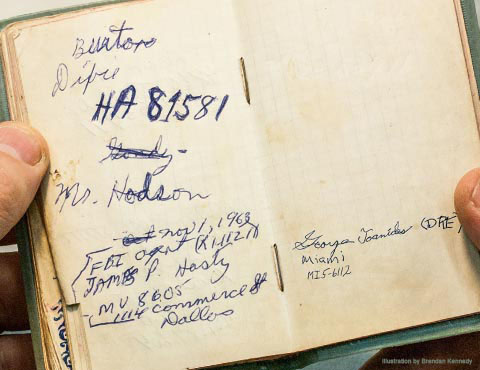 Burton
Dixie
HA 81581
Gandy -
Mr. Hodson
Nov 1, 1963
FBI agent (RI11211)
JAMES P. Hasty
MU 8605
1114 commerce St
Dallas
George Joanides (DRE)
Miami
MI5-6112
Illustration by Brendan Kennedy